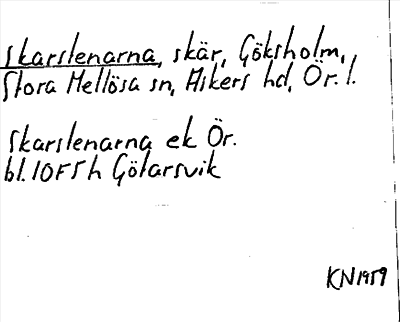 Skarstenarna, skär, Göksholm,
Stora Mellösa sn, Askers hd, Ör. l.
Skarstenarna ek Ör.
bl. 10F5h Götarsvik
KN 1959